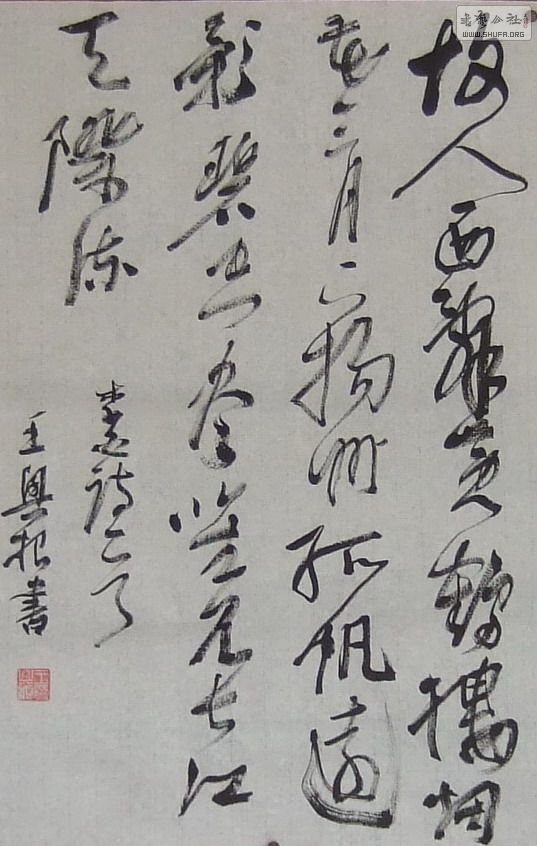 故人西辭黃鶴樓烟
花三月下揚州孤帆遠
影碧空盡唯見長江
天際流
李白詩一首
王興書
WWW.SHUFA.ORG